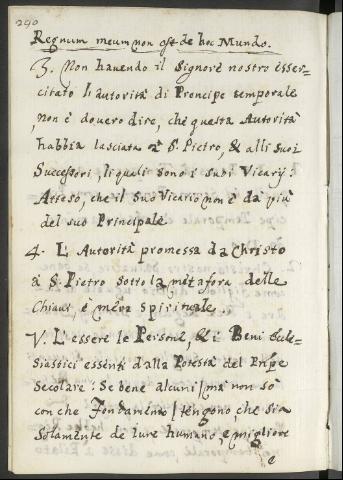 290
Regnum meum non est de hoc Mundo.
3. Non hauendo il Signore nostro esser=
citato l'autorità di Prencipe temporale
, non è douero dire, che questa Autorità
habbia lasciata à S. Pietro, & alli suoi
Successori, li quali sono i suoi Vicarij:
Atteso, che il suo Vicario non è da più
del suo Principale
4. L'Autorità promessa da Christo
à S. Pietro sotto la metafora delle
Chiaui è mera spirituale.
V. L'essere le Persone, & i Beni Eccle=
siastici essenti dalla Potestà del Prnpe
Secolare: Se bene alcuni (ma non so
con che fondamento) tengono che sia
solamente de iure humano, e migliore
e